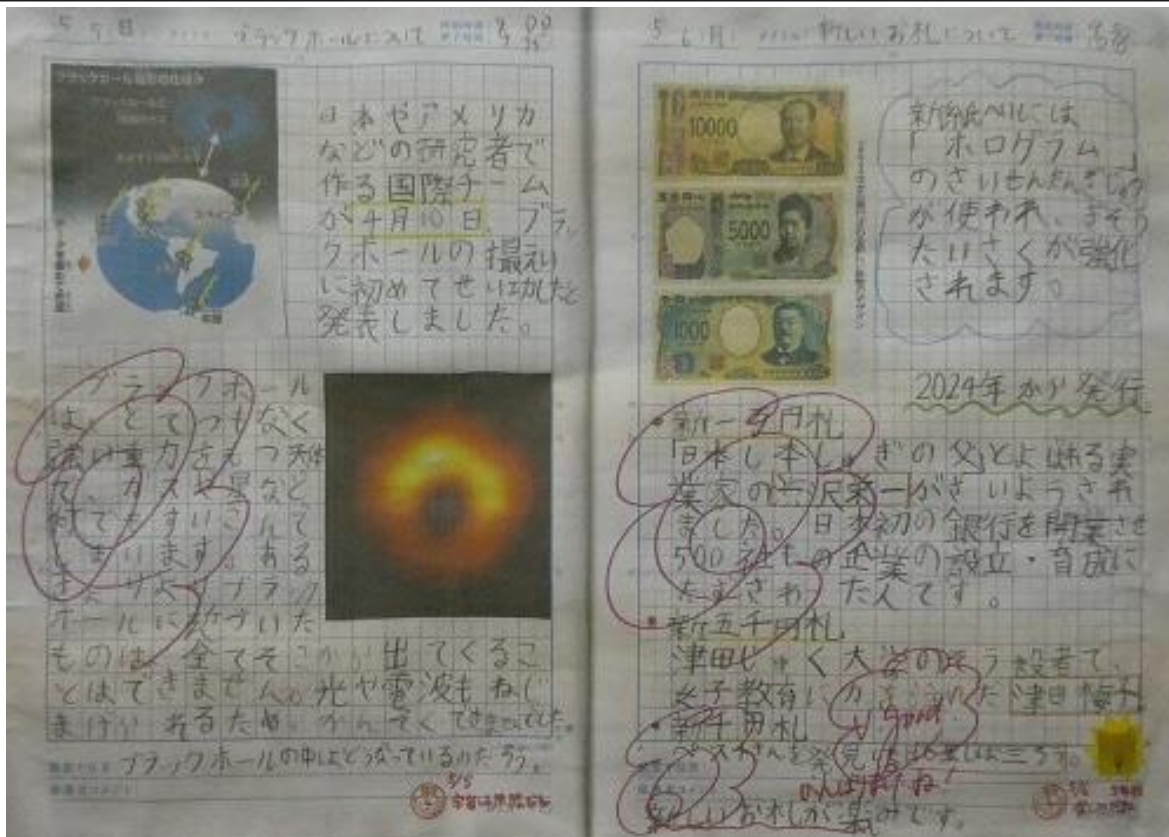 5 5 日
ブラックホールについて
ブラックホール撮影の仕組み
日本やアメリカ
などの研究者で
作る国際チーム
が4月10日、ブラッ
クホールの撮えい
に初めてせい功したと
発表しました。
ブラックホール
は、とてつもなく
強い重力をもつ天体
で、ガスや星など
何でもすいこんで
しまいます。ある
ブラック
ホールに近づいた
ものは、全てそこから出てくるこ
とはできません。光や電波もねじ
まげられるため、かんそくできませんでした。
ブラックホールの中はどうなっているのだろう。
5/5
5 6 月
新しいお札について
10000
5000
1000
新紙へいには
「ホログラム」
のさいせんたんぎじゅつ
が使われ、ぎぞう
たいさくが強化
されます。
2024年から発行
・新一万円札
「日本し本しゅぎの父」とよばれる実
業家の渋沢栄一がさいようされ
ました。日本初の銀行を開業させ
500社もの企業の設立・育成に
たずさわった人です。
・新五千円札
津田じゅく大学のそう設者で、
女子教育に力をそそいだ津田梅子。
・新千円札
ペストきんを発見した
good!
新しいお札が楽しみです。
5/6